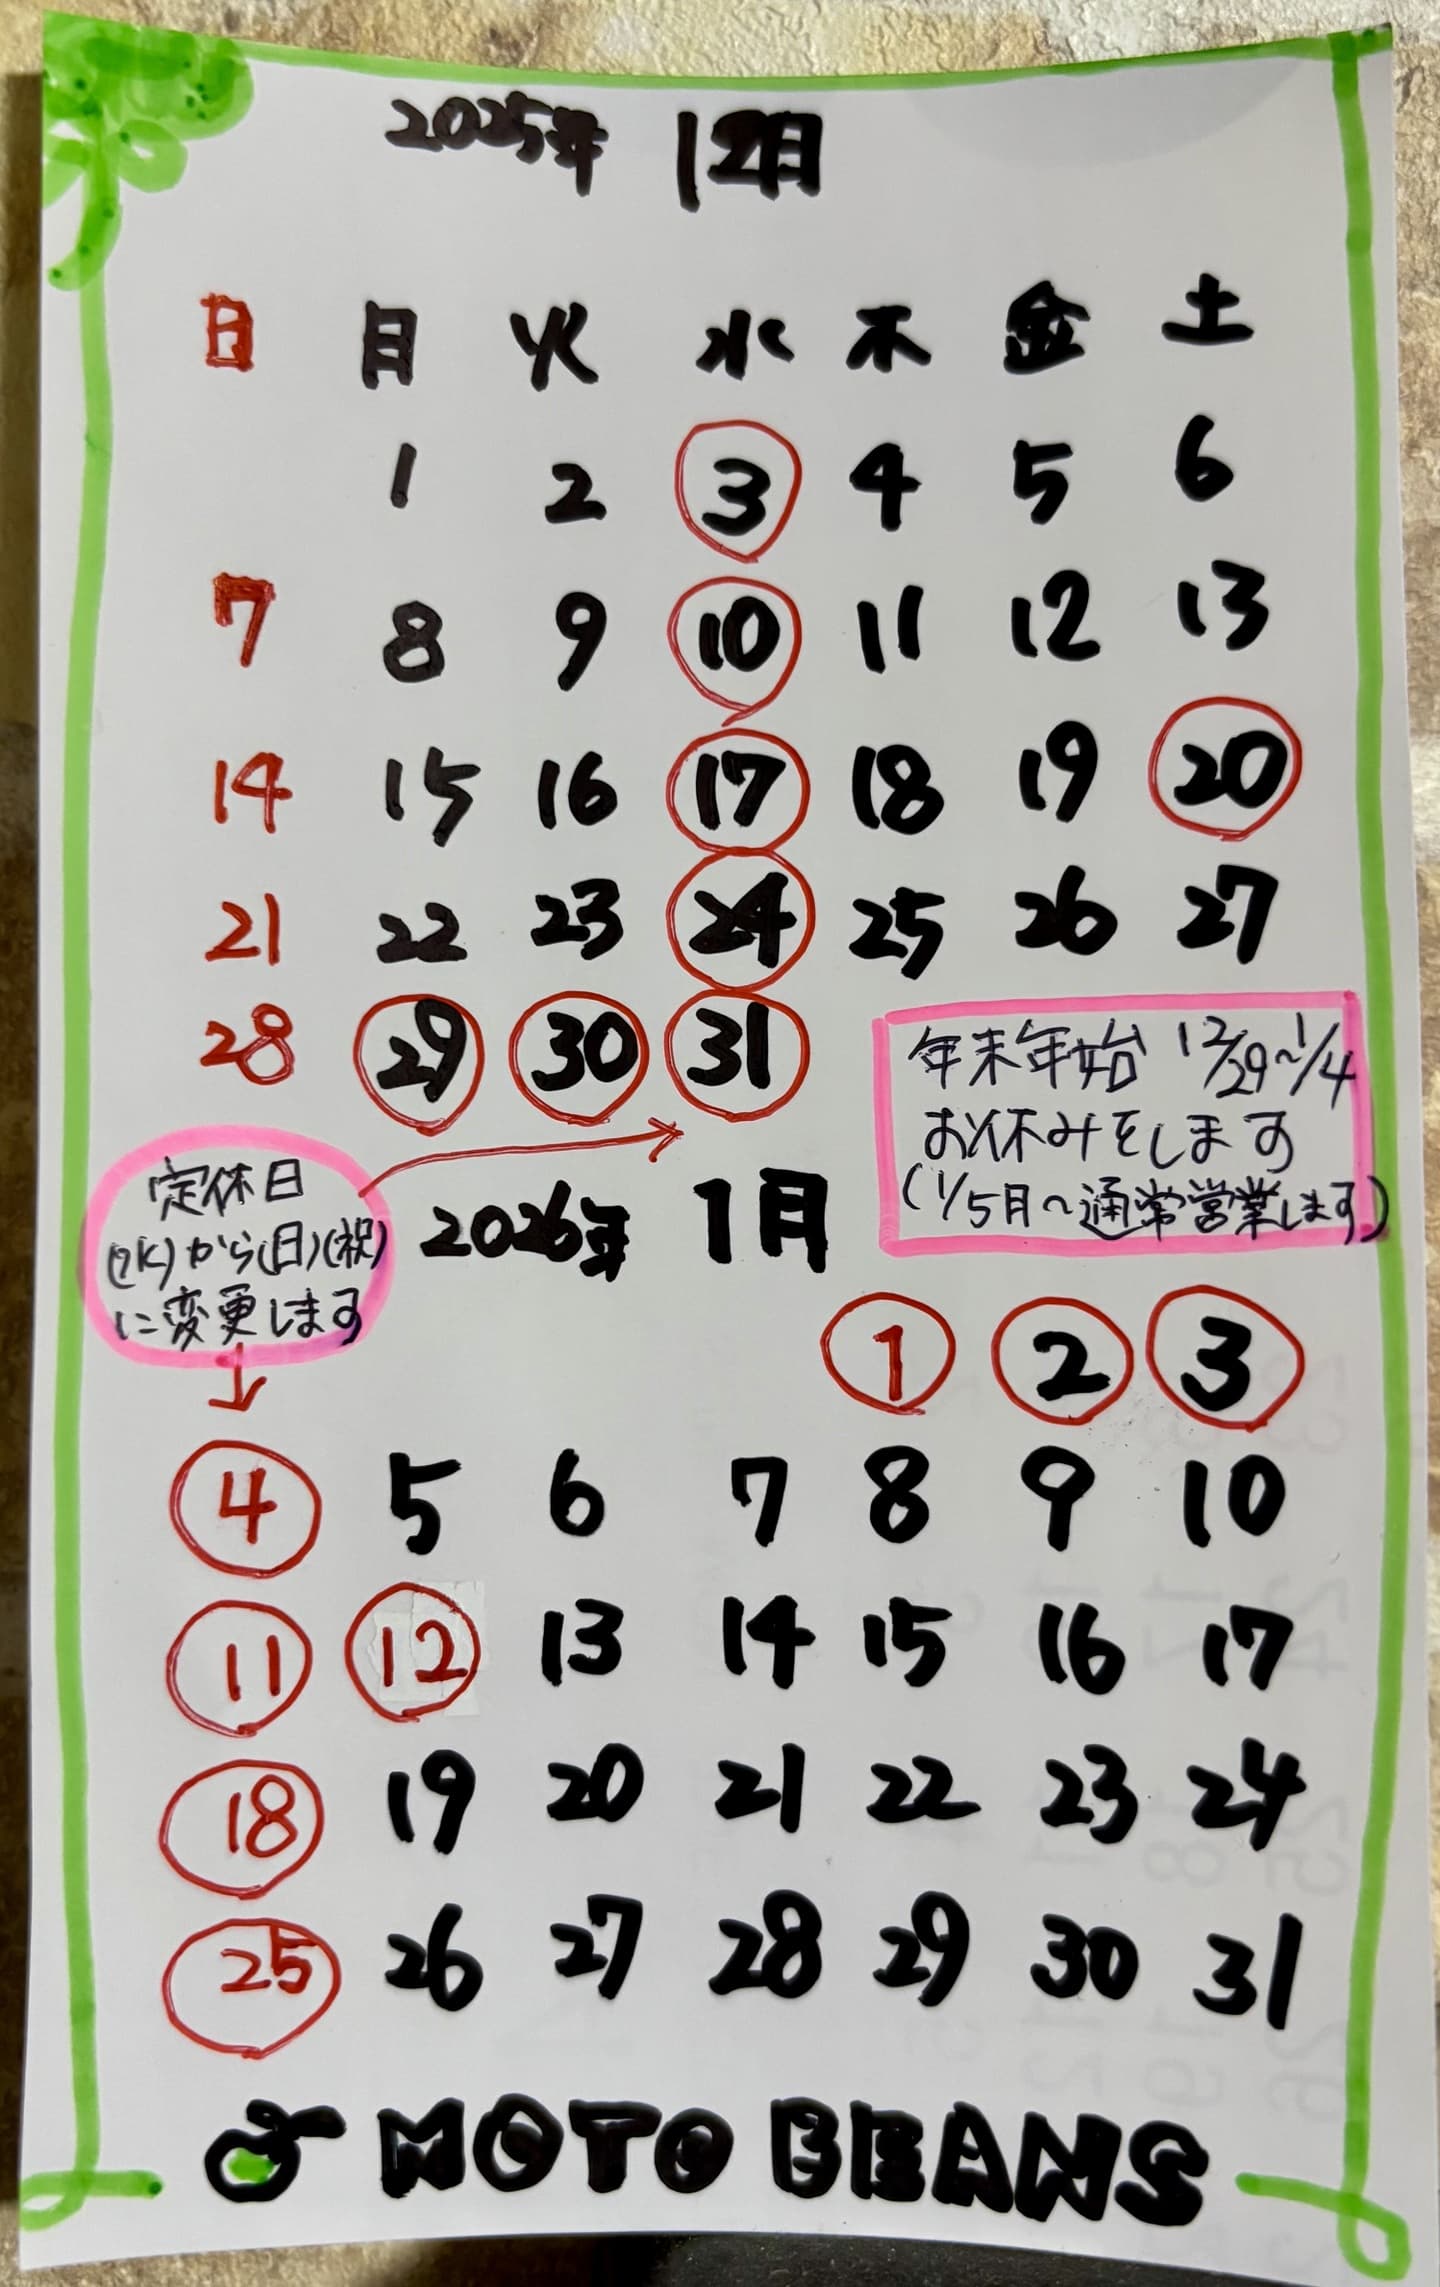 2025年 12月
日 月 火 水 木 金 土
1 2 3 4 5 6
7 8 9 10 11 12 13
14 15 16 17 18 19 20
21 22 23 24 25 26 27
28 29 30 31
年末年始 12/29~1/4
お休みをします
(1/5月~通常営業します)
定休日
(水)から(日)(祝)
に変更します
2026年 1月
1 2 3
4 5 6 7 8 9 10
11 12 13 14 15 16 17
18 19 20 21 22 23 24
25 26 27 28 29 30 31
MOTO BEANS